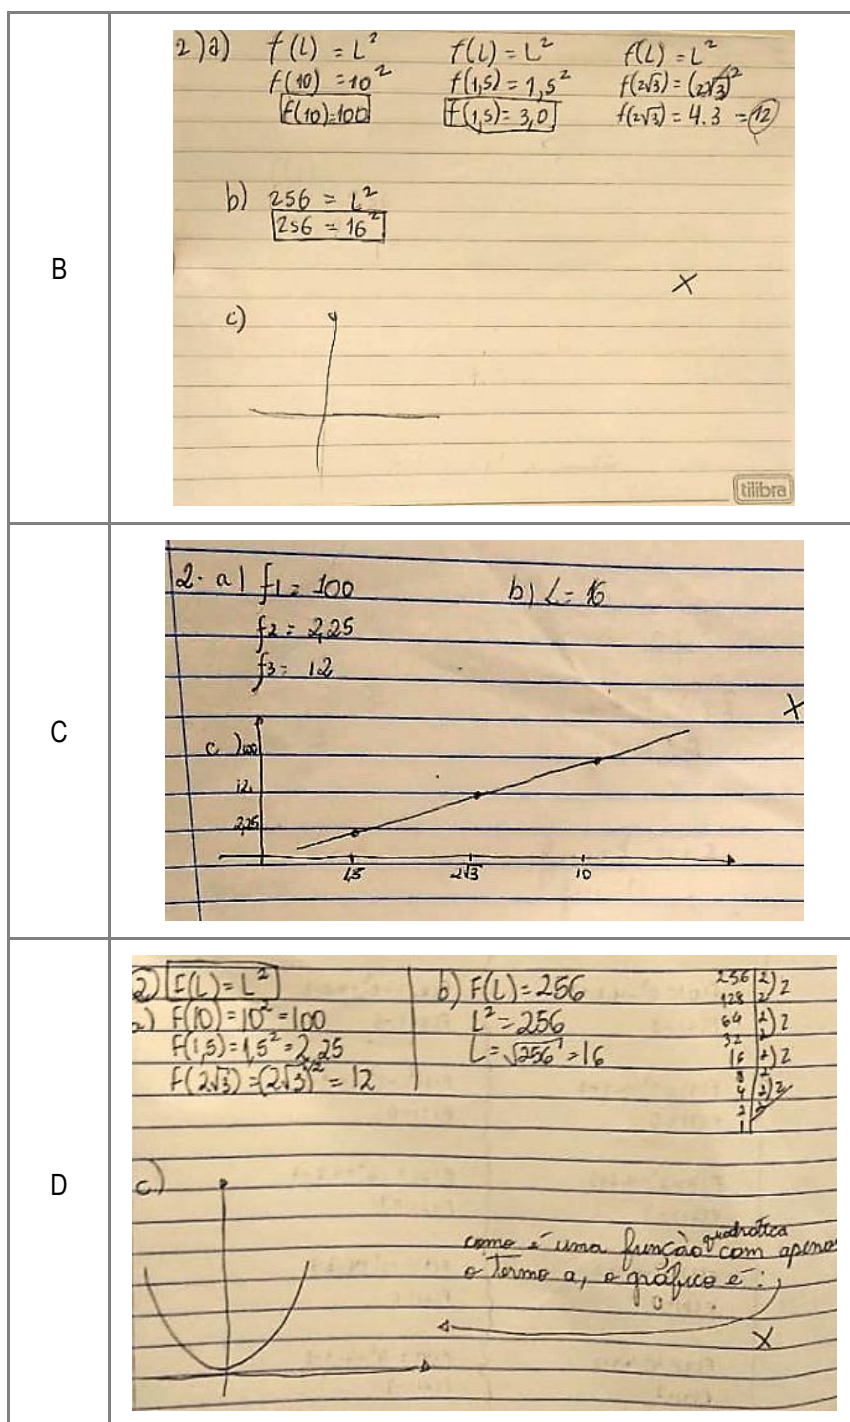 B
2)a) f(L) = L² f(L) = L² f(L) = L²
f(10) = 10² f(1,5) = 1,5² f(2√3) = (2√3)²
f(10)=100 f(1,5) = 3,0 f(2√3) = 4.3 = 12
b) 256 = L²
256 = 16²
X
c)
tilibra
C
2. a) f1 = 100 b) L = 16
f2 = 2,25
f3 = 12
X
c) 100
12
2,25
1,5 2√3 10
D
2) F(L) = L²
a) F(10) = 10² = 100
F(1,5) = 1,5² = 2,25
F(2√3) = (2√3)² = 12
b) F(L) = 256
L² = 256
L = √256 = 16
256 | 2) 2
128 | 2
64 | 2) 2
32 | 2
16 | 2) 2
8 | 2
4 | 2) 2
2 | 2
1
c)
como é uma função quadrática com apenas
o termo a, o gráfico é:
X